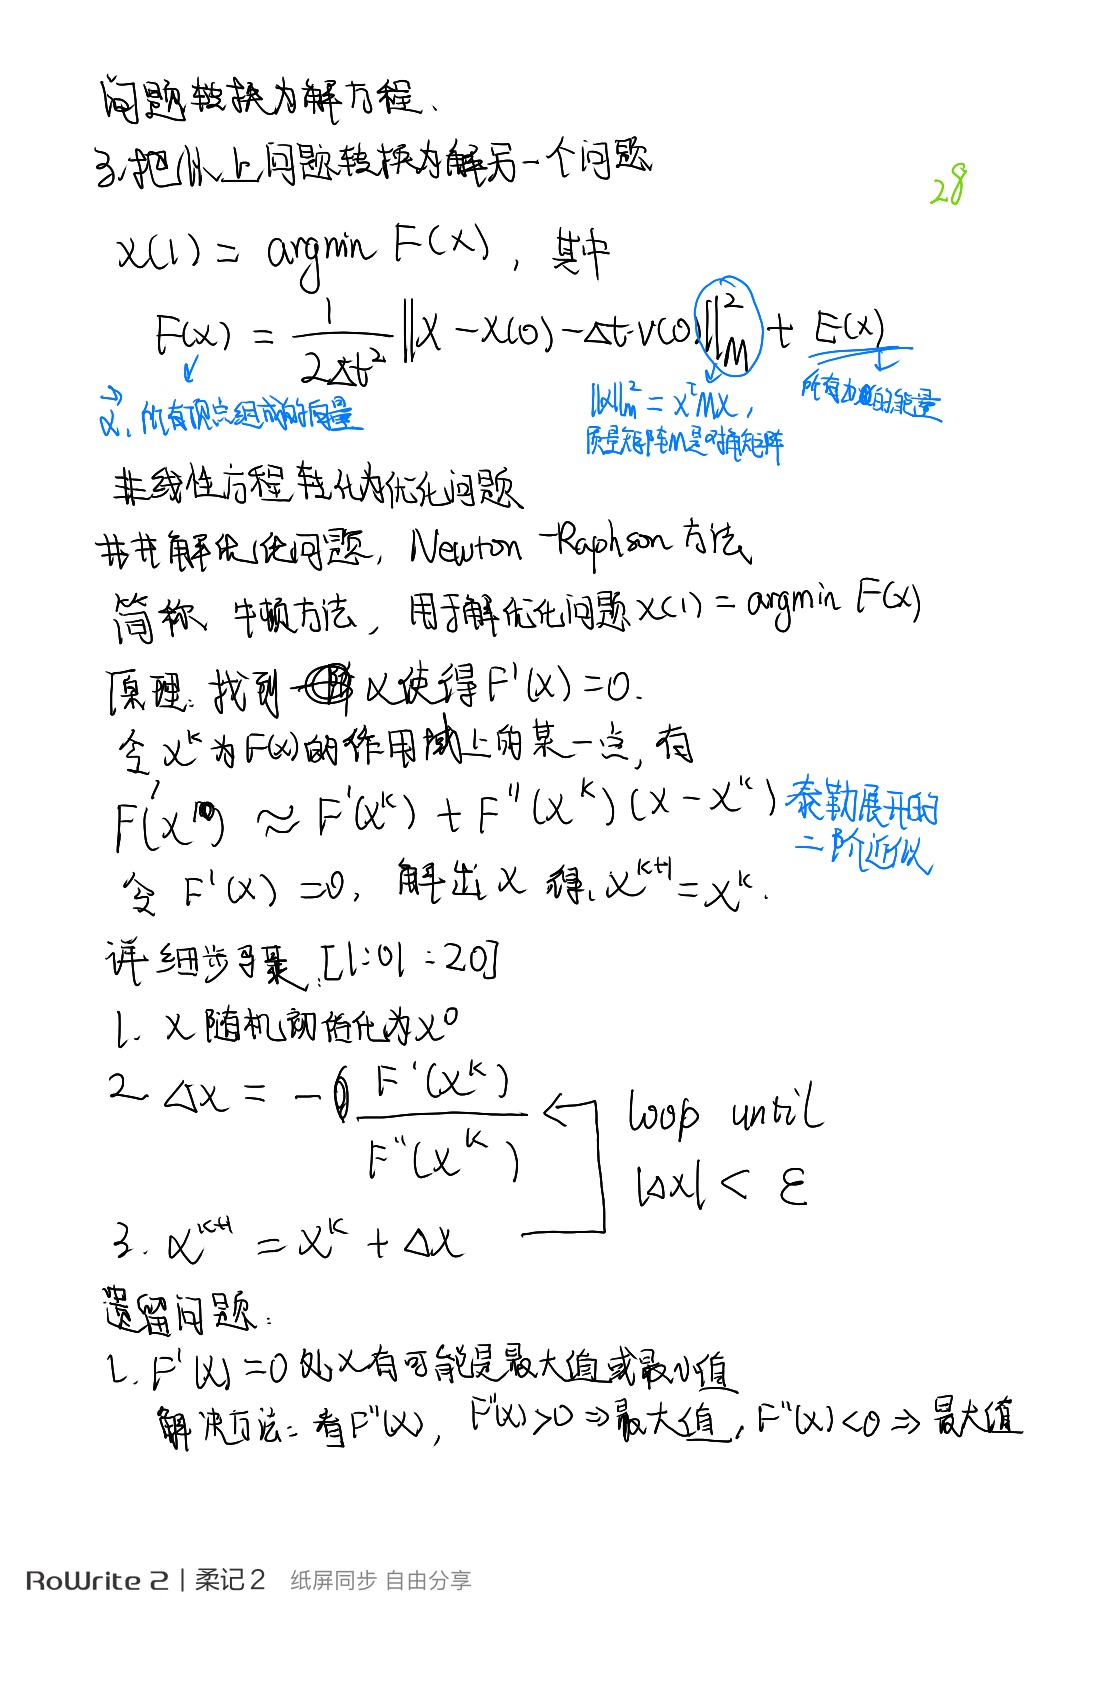 问题转换为解方程.
3.把以上问题转换为解另一个问题
28
x(1) = argmin F(x), 其中
F(x) = 1/(2Δt²) ||x - x(0) - Δt·v(0)||²_M + E(x)
x⃗, 所有顶点组成的向量
||x||²_M = xᵀMx,
质量矩阵M是对角矩阵
所有力的能量
非线性方程转化为优化问题
## 解优化问题, Newton-Raphson方法
简称 牛顿方法, 用于解优化问题 x(1) = argmin F(x)
原理: 找到 x使得F'(x)=0.
令 xᵏ 为F(x)的作用域上的某一点, 有
F'(x) ≈ F'(xᵏ) + F''(xᵏ)(x - xᵏ) 泰勒展开的
二阶近似
令 F'(x) = 0, 解出 x 得, xᵏ⁺¹ = xᵏ.
详细步骤: [1:01:20]
1. x 随机初始化为x⁰
2. Δx = - F'(xᵏ)/F''(xᵏ)
loop until
|Δx| < ε
3. xᵏ⁺¹ = xᵏ + Δx
遗留问题:
1. F'(x)=0 处 x有可能是最大值或最小值
解决方法: 看F''(x), F''(x)>0 ⇒ 最大值, F''(x)<0 ⇒ 最大值
RoWrite 2 | 柔记 2 纸屏同步 自由分享